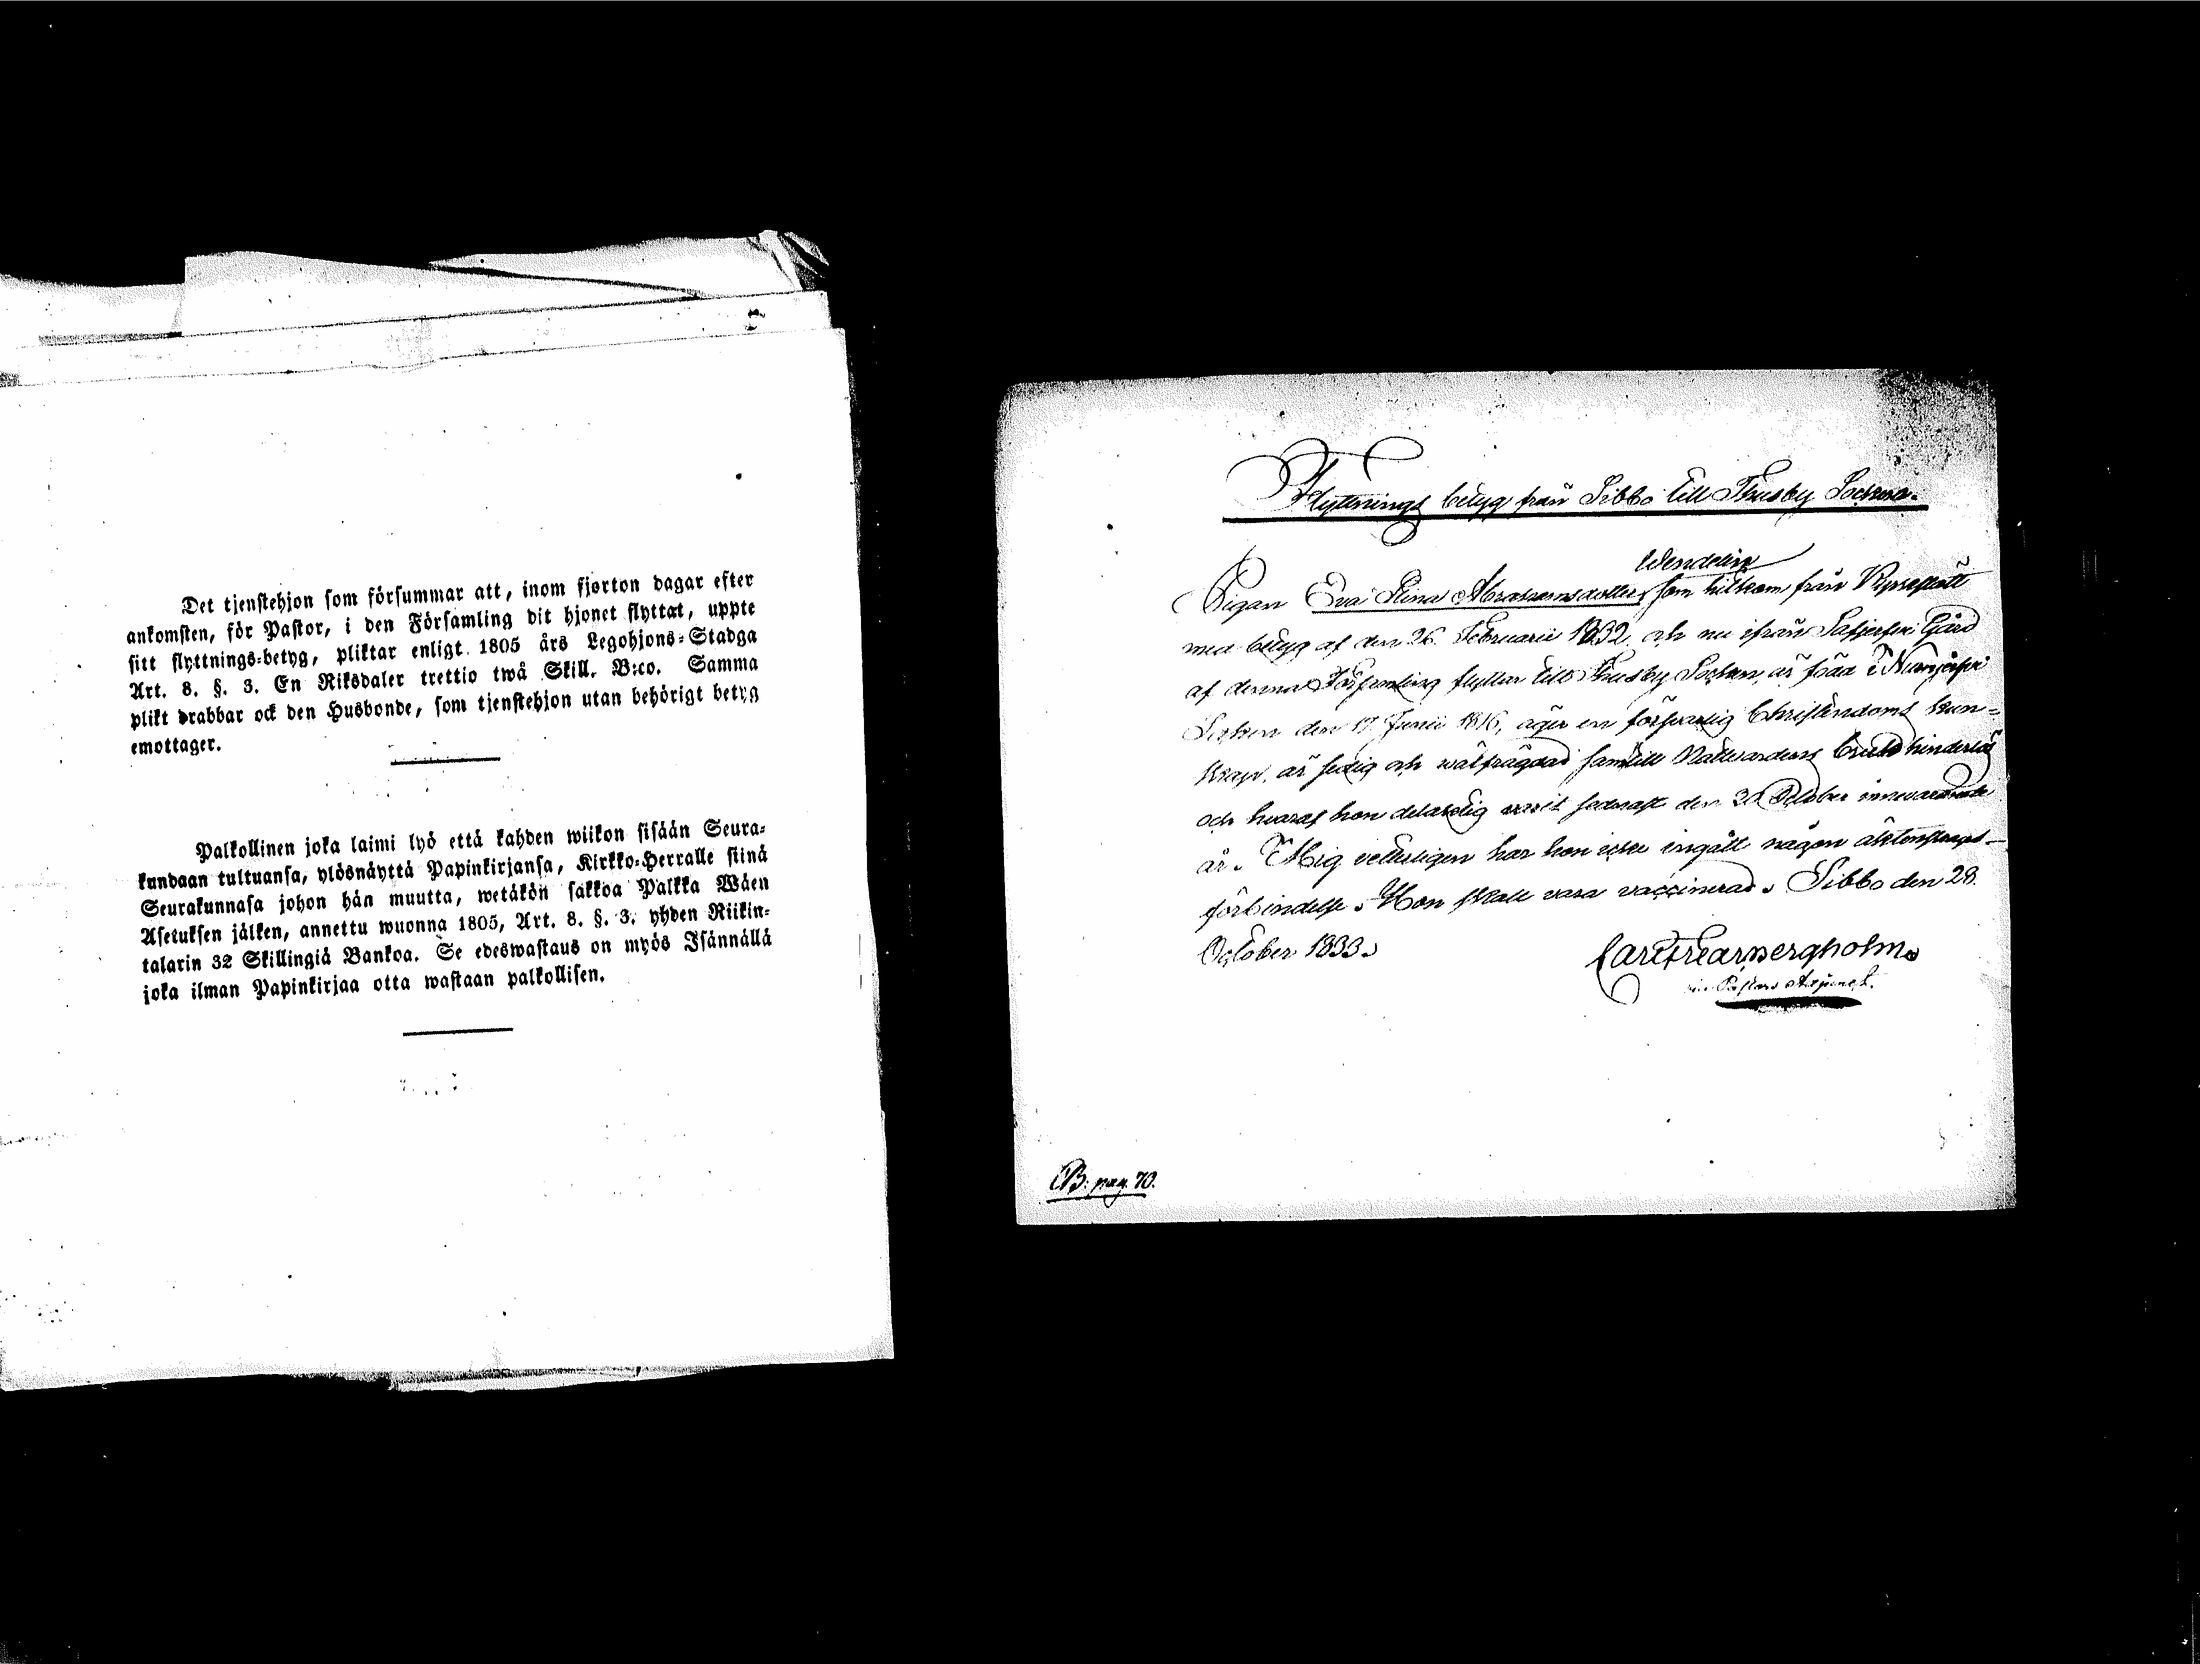 Det tjenstehjon som försummar att, inom fjorton dagar efter
ankomsten, för Pastor, i den Församling dit hjonet flyttat, uppte
sitt flyttnings-betyg, pliktar enligt 1805 års Legohjons-Stadga
Art. 8. §. 3. En Riksdaler trettio twå Skill. B:co. Samma
plikt drabbar ock den Husbonde, som tjenstehjon utan behörigt betyg
emottager.
Palkollinen joka laimi lyö että kahden wiikon sisään Seura-
kundaan tultuansa, ylösnäyttä Papinkirjansa, Kirkko-Herralle siinä
Seurakunnasa johon hän muutta, wetäkön sakkoa Palkka Wäen
Asetuksen jälken, annettu wuonna 1805, Art. 8. §. 3. yhden Riikin-
talarin 32 Skillingiä Bankoa. Se edeswastaus on myös Isännällä
joka ilman Papinkirjaa otta wastaan palkollisen.
Flyttnings betyg från Sibbo till Thusby Socken.
Wendelin
Pigan Eva Stina Abrahamsdotter, som hitkom från
med betyg af den 26 Februarii 1832, och nu ifrån Gård
af denna Församling flyttar till Thusby Socken, är född i Nurmijerfvi
Socken den 17 Junii 1816, äger en försvarlig Christendoms kun-
skap, är sedig och wälfrägdad samt till Nattvardens bruk hinderlös
och hvaraf hon delaktig varit sednast den 20 October innevarande
år. Mig vetterligen har hon icke ingått någon äktenskaps-
förbindelse. Hon skall vara vaccinerad. Sibbo den 28.
October 1833.
Pastors Adjunct.
CB: pag. 70.